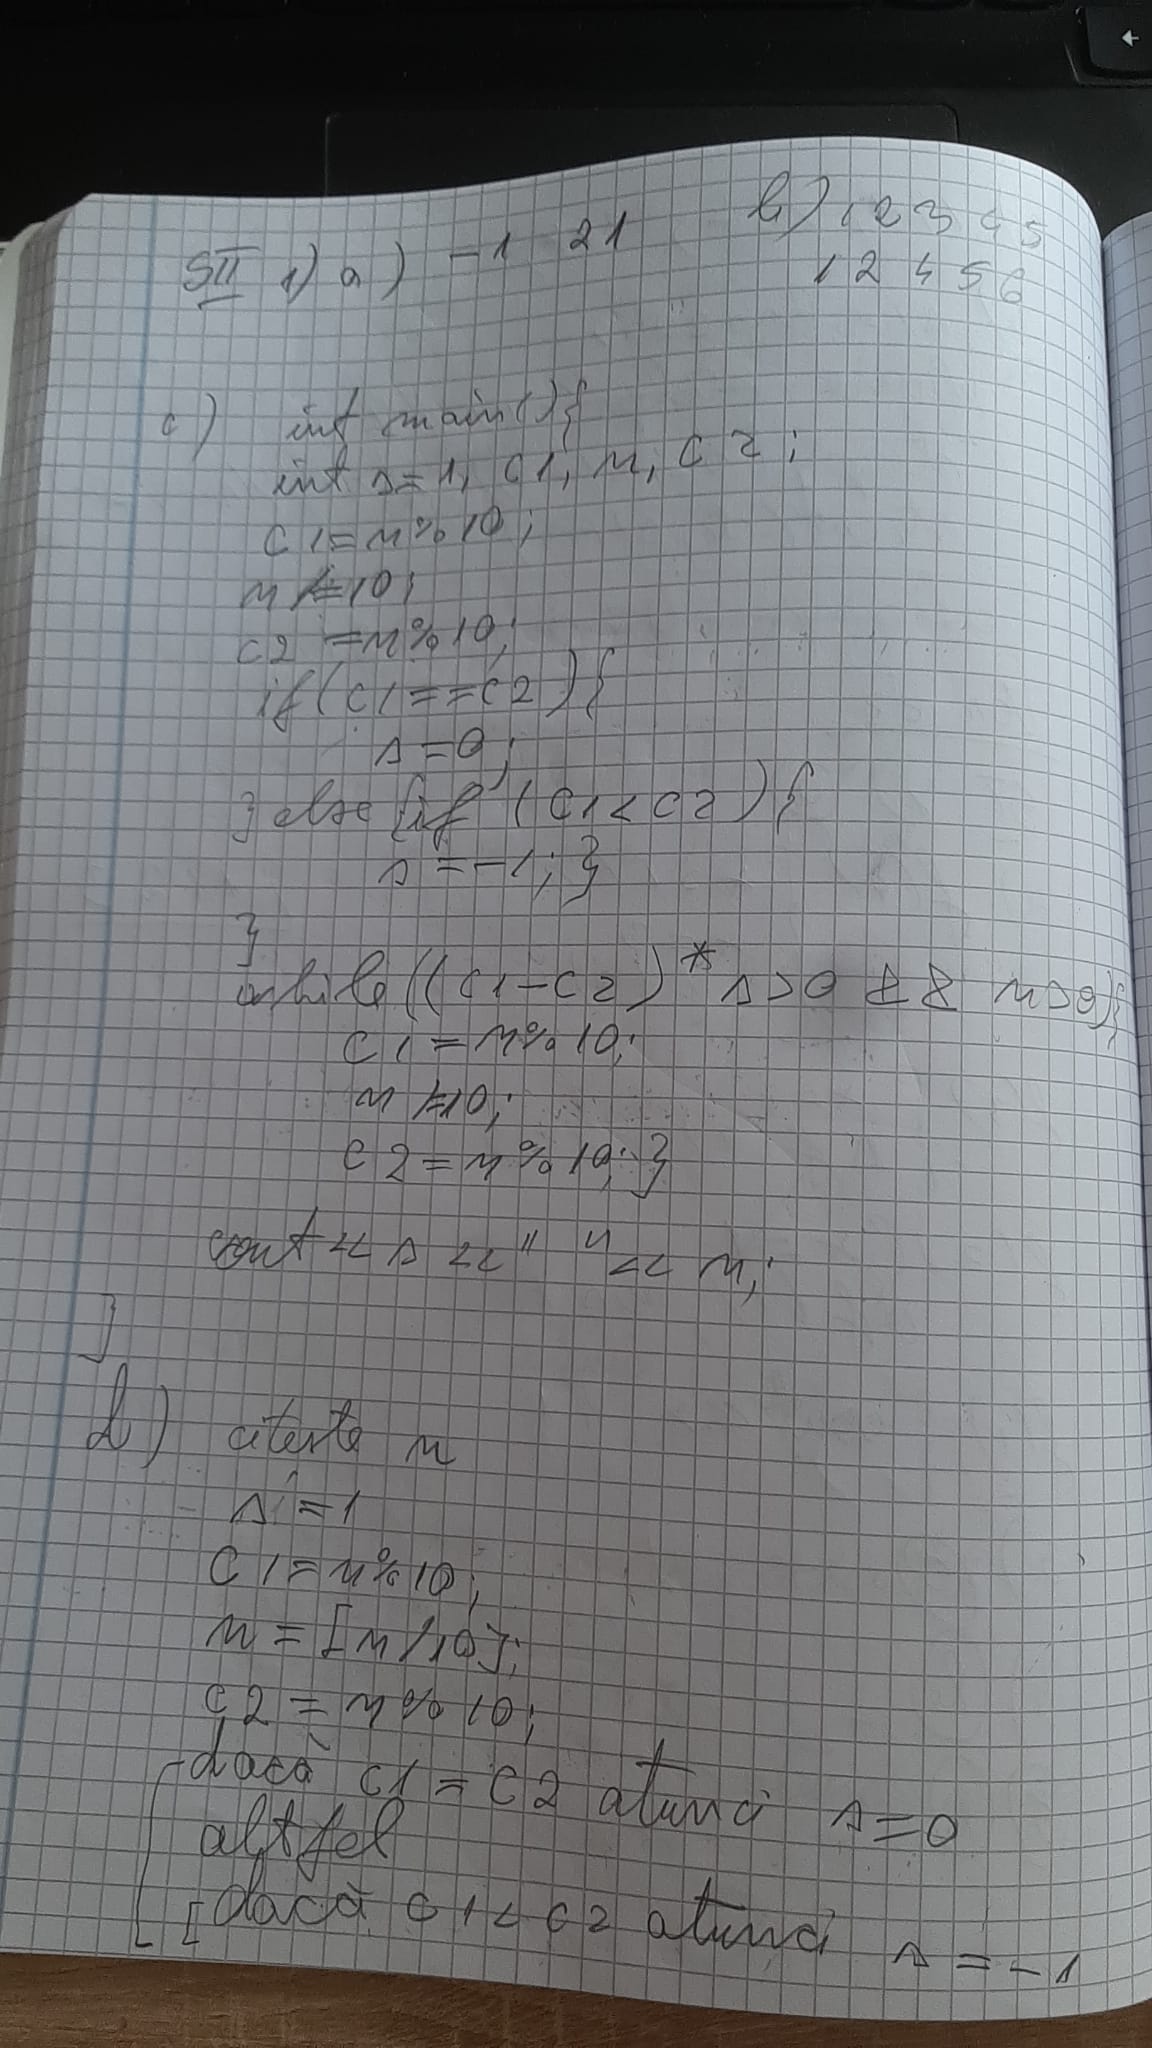 SII 1) a) -1 21 b) 1 2 3 4 5
1 2 4 5 6
c) int main(){
int s=1, c1, n, c2;
c1=n%10;
n/=10;
c2=n%10;
if(c1==c2){
s=0;
}else{if (c1<c2){
s=-1;}
}
while((c1-c2)*s>0 && n>0){
c1=n%10;
n/=10;
c2=n%10;}
cout<<s<<" "<<n;
}
d) citeste n
s=1
c1=n%10;
n=[n/10];
c2=n%10;
dacă c1=c2 atunci s=0
altfel
[dacă c1<c2 atunci s=-1